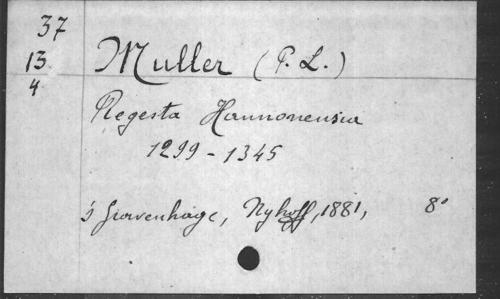 37
13
4
Muller (P. L.)
Regesta Hannonensia
1299 - 1345
's Gravenhage, Nyhoff, 1881, 8°